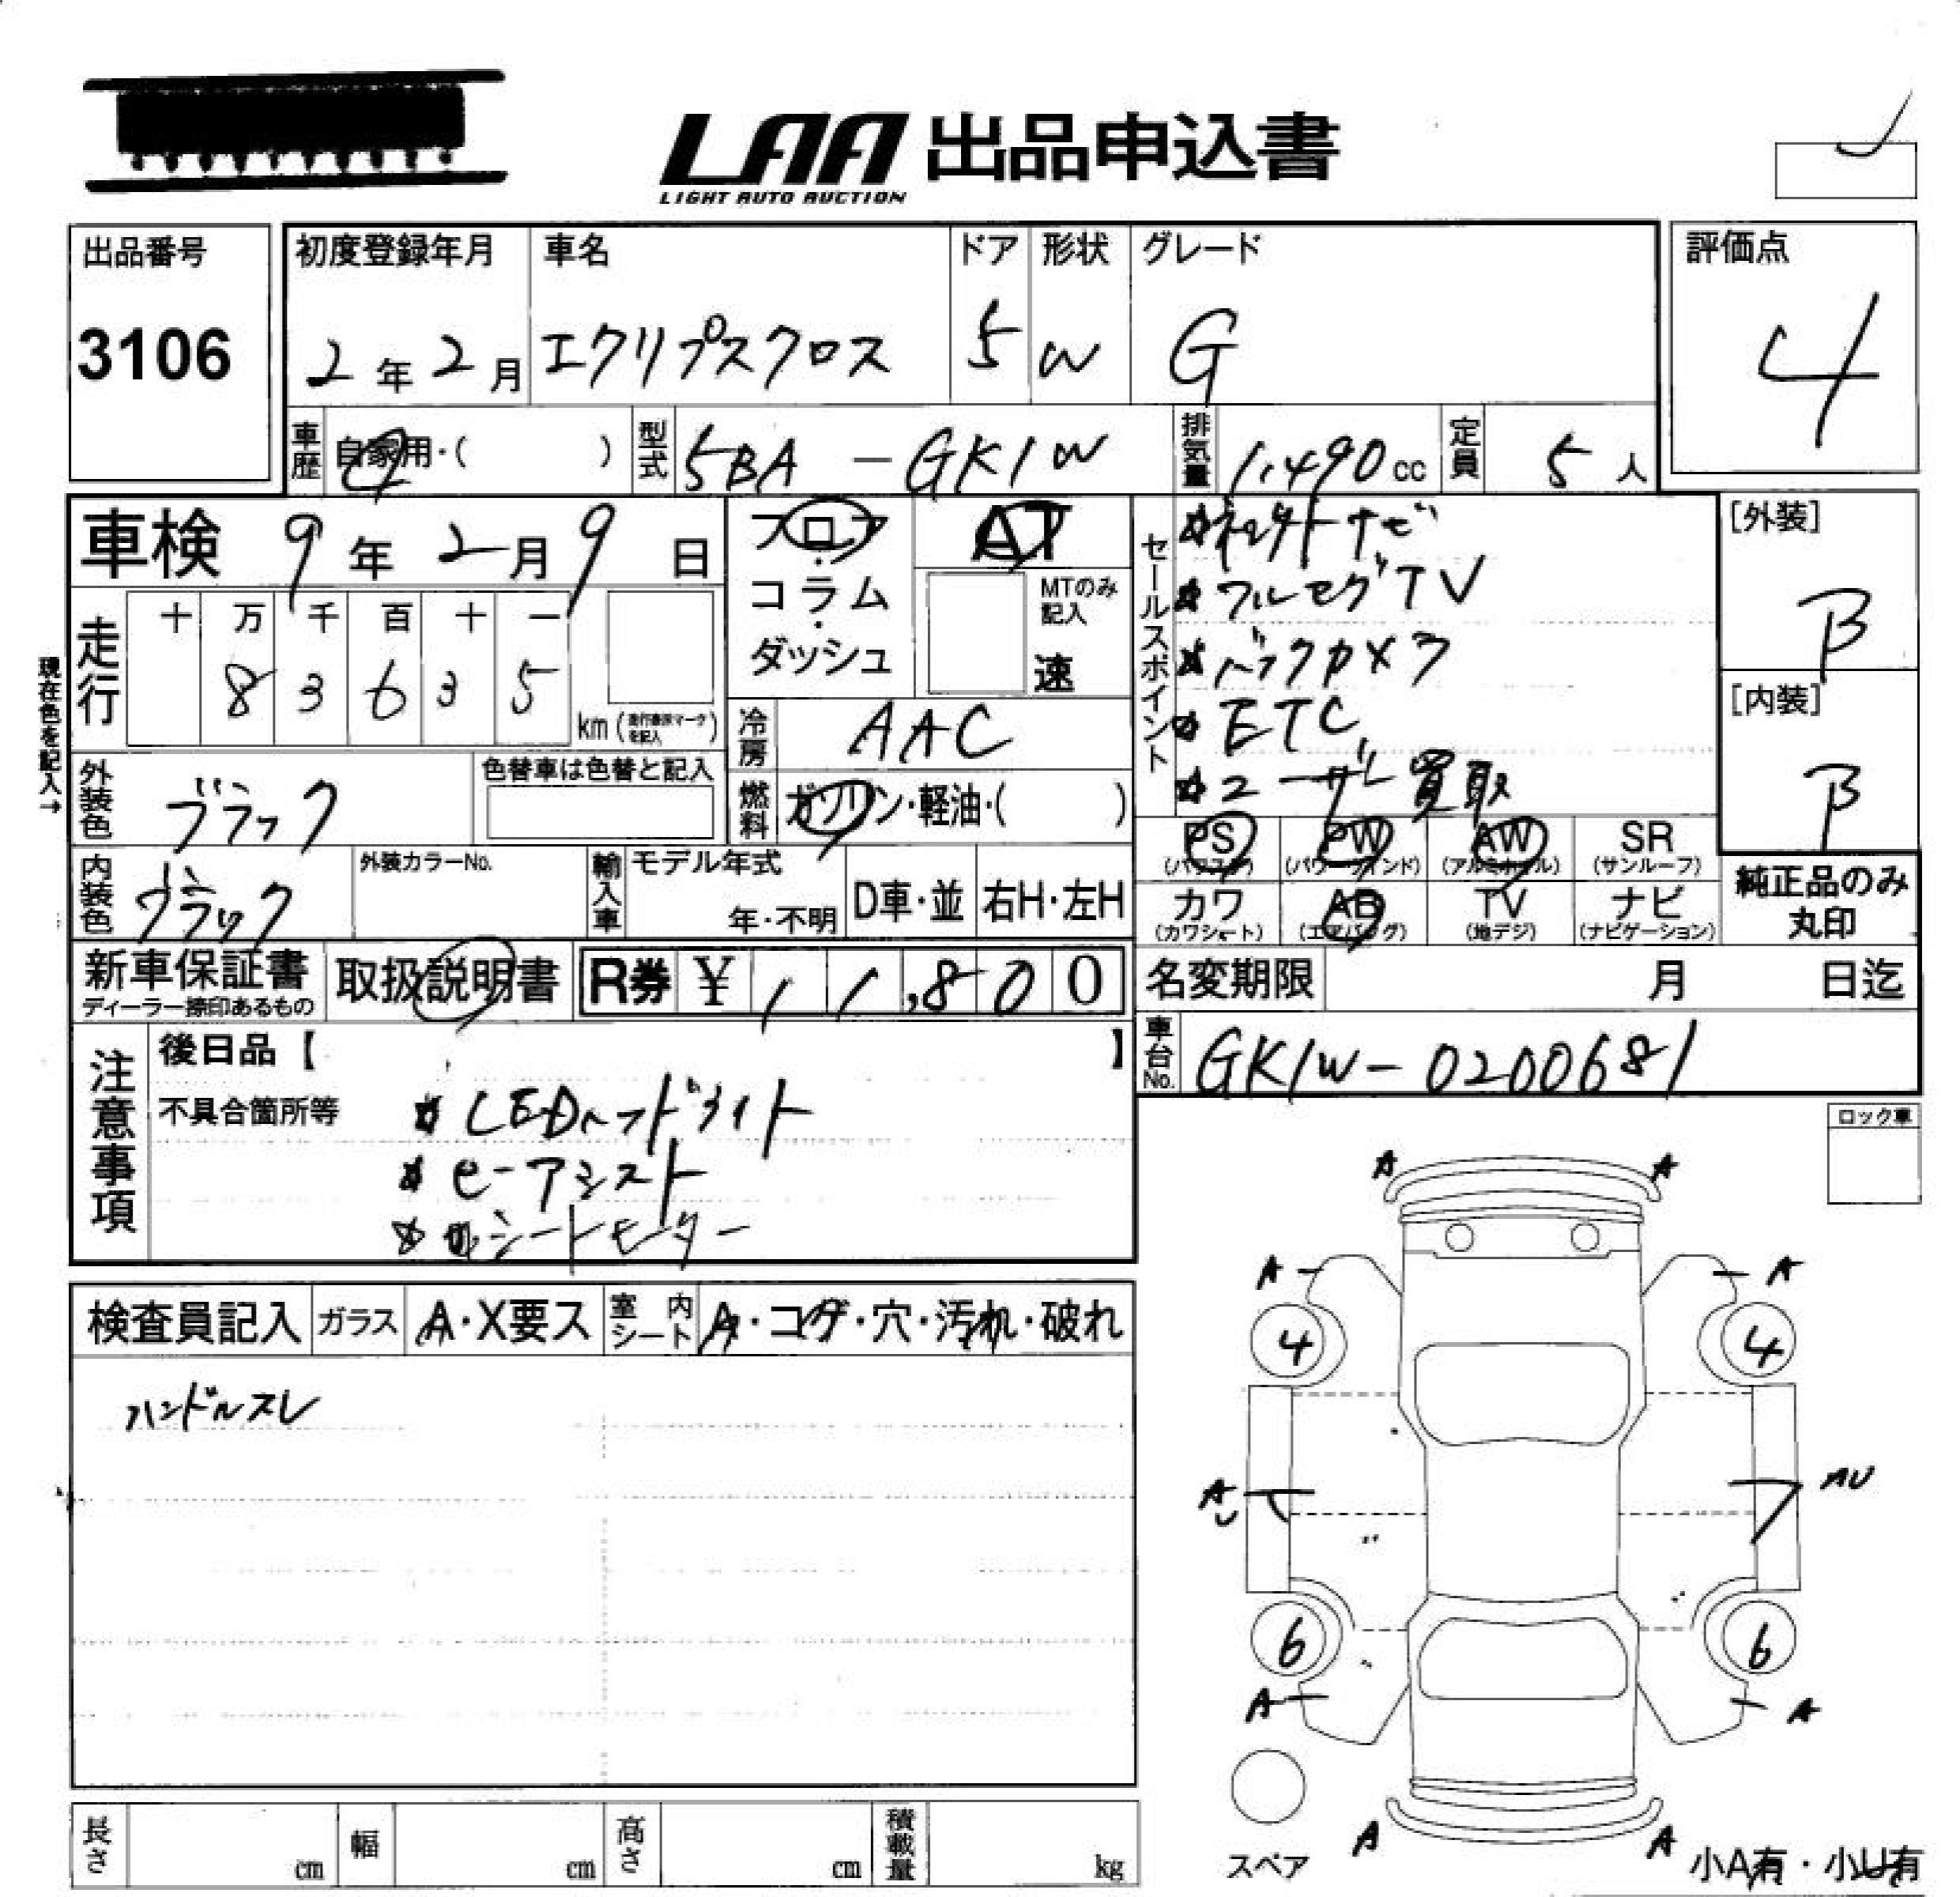 LAA 出品申込書
LIGHT AUTO AUCTION
出品番号
3106
初度登録年月
2年2月
車名
エクリプスクロス
ドア
5
形状
W
グレード
G
評価点
4
車歴
自家用・( )
型式
5BA - GK1W
排気量
1,490cc
定員
5人
車検 9年2月9日
フロア・コラム・ダッシュ
AT
MTのみ記入
速
セールスポイント
フルセグTV
バックカメラ
ETC
ユーザー買取
[外装]
B
[内装]
B
現在色を記入→
走行
十 万 千 百 十 一
8 3 6 3 5
km(走行車検マークを記入)
冷房
AAC
燃料
ガソリン・軽油・( )
外装色
ブラック
色替車は色替と記入
内装色
ブラック
外装カラーNo.
輸入車
モデル年式
年・不明
D車・並
右H・左H
PS
(パワステ)
PW
(パワーウインド)
AW
(アルミホイル)
SR
(サンルーフ)
カワ
(カワシート)
AB
(エアバッグ)
TV
(地デジ)
ナビ
(ナビゲーション)
純正品のみ丸印
新車保証書
ディーラー捺印あるもの
取扱説明書
R券 ¥11,800
名変期限 月 日迄
車台No.
GK1W-0200681
注意事項
後日品【 】
不具合箇所等
LEDヘッドライト
e-アシスト
シートヒーター
ロック車
検査員記入
ガラス
A・X要ス
室内シート
A・コゲ・穴・汚れ・破れ
ハンドルスレ
A A
A A
4 4
A AU
6 6
A A
A A
スペア
小A有・小U有
長さ cm
幅 cm
高さ cm
積載量 kg